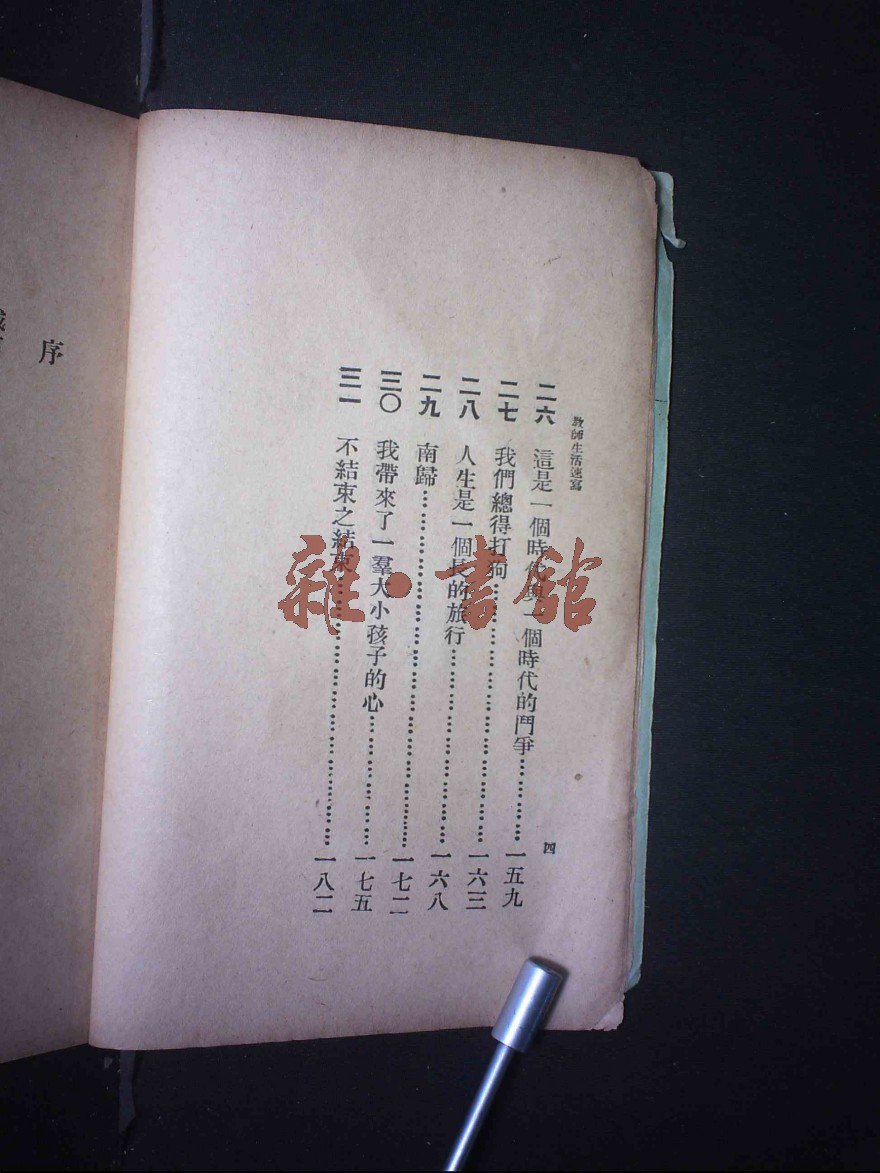 教師生活速寫
四
二六 這是一個時代與一個時代的鬥爭………………一五九
二七 我們總得打狗………………一六三
二八 人生是一個長的旅行………………一六八
二九 南歸………………一七二
三〇 我帶來了一羣大小孩子的心………………一七五
三一 不結束之結束………………一八二
序
雜·書館